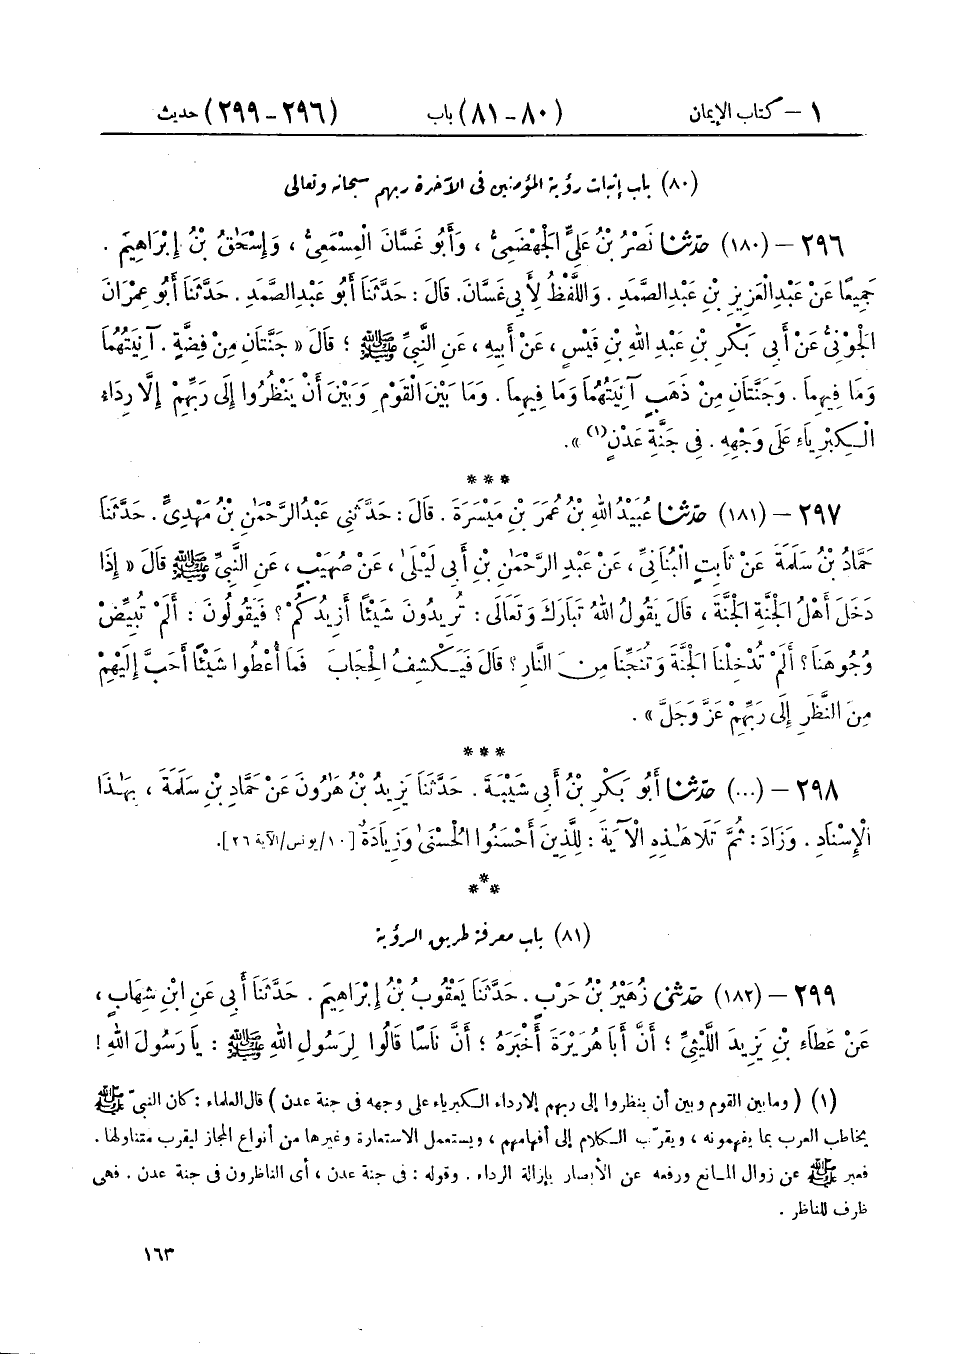 ١ – كتاب الإيمان (٨٠ – ٨١) باب (٢٩٦ – ٢٩٩) حديث
(٨٠) باب إثبات رؤية المؤمنين فى الآخرة ربهم سبحانه وتعالى
٢٩٦ – (١٨٠) حَدَّثَنَا نَصْرُ بْنُ عَلِيٍّ الْجَهْضَمِيُّ ، وَأَبُو غَسَّانَ الْمِسْمَعِيُّ ، وَإِسْحَٰقُ بْنُ إِبْرَاهِيمَ .
جَمِيعًا عَنْ عَبْدِ الْعَزِيزِ بْنِ عَبْدِ الصَّمَدِ . وَاللَّفْظُ لِأَبِي غَسَّانَ . قَالَ : حَدَّثَنَا أَبُو عَبْدِ الصَّمَدِ . حَدَّثَنَا أَبُو عِمْرَانَ
الْجَوْنِيُّ عَنْ أَبِي بَكْرِ بْنِ عَبْدِ اللهِ بْنِ قَيْسٍ ، عَنْ أَبِيهِ ، عَنِ النَّبِيِّ ﷺ ؛ قَالَ « جَنَّتَانِ مِنْ فِضَّةٍ . آنِيَتُهُمَا
وَمَا فِيهِمَا . وَجَنَّتَانِ مِنْ ذَهَبٍ آنِيَتُهُمَا وَمَا فِيهِمَا . وَمَا بَيْنَ الْقَوْمِ وَبَيْنَ أَنْ يَنْظُرُوا إِلَى رَبِّهِمْ إِلَّا رِدَاءُ
الْكِبْرِيَاءِ عَلَى وَجْهِهِ . فِي جَنَّةِ عَدْنٍ (١) » .
***
٢٩٧ – (١٨١) حَدَّثَنَا عُبَيْدُ اللهِ بْنُ عُمَرَ بْنِ مَيْسَرَةَ . قَالَ : حَدَّثَنِي عَبْدُ الرَّحْمَٰنِ بْنُ مَهْدِيٍّ . حَدَّثَنَا
حَمَّادُ بْنُ سَلَمَةَ عَنْ ثَابِتٍ الْبُنَانِيِّ ، عَنْ عَبْدِ الرَّحْمَٰنِ بْنِ أَبِي لَيْلَىٰ ، عَنْ صُهَيْبٍ ، عَنِ النَّبِيِّ ﷺ قَالَ « إِذَا
دَخَلَ أَهْلُ الْجَنَّةِ الْجَنَّةَ ، قَالَ يَقُولُ اللهُ تَبَارَكَ وَتَعَالَى : تُرِيدُونَ شَيْئًا أَزِيدُكُمْ ؟ فَيَقُولُونَ : أَلَمْ تُبَيِّضْ
وُجُوهَنَا ؟ أَلَمْ تُدْخِلْنَا الْجَنَّةَ وَتُنَجِّنَا مِنَ النَّارِ ؟ قَالَ فَيَكْشِفُ الْحِجَابَ فَمَا أُعْطُوا شَيْئًا أَحَبَّ إِلَيْهِمْ
مِنَ النَّظَرِ إِلَى رَبِّهِمْ عَزَّ وَجَلَّ » .
***
٢٩٨ – (...) حَدَّثَنَا أَبُو بَكْرِ بْنُ أَبِي شَيْبَةَ . حَدَّثَنَا يَزِيدُ بْنُ هَٰرُونَ عَنْ حَمَّادِ بْنِ سَلَمَةَ ، بِهَٰذَا
الْإِسْنَادِ . وَزَادَ : ثُمَّ تَلَا هَٰذِهِ الْآيَةَ : لِلَّذِينَ أَحْسَنُوا الْحُسْنَىٰ وَزِيَادَةٌ [ ١٠/يونس/الآية ٢٦ ] .
***
(٨١) باب معرفة طريق الرؤية
٢٩٩ – (١٨٢) حَدَّثَنِي زُهَيْرُ بْنُ حَرْبٍ . حَدَّثَنَا يَعْقُوبُ بْنُ إِبْرَاهِيمَ . حَدَّثَنَا أَبِي عَنِ ابْنِ شِهَابٍ ،
عَنْ عَطَاءِ بْنِ يَزِيدَ اللَّيْثِيِّ ؛ أَنَّ أَبَا هُرَيْرَةَ أَخْبَرَهُ ؛ أَنَّ نَاسًا قَالُوا لِرَسُولِ اللهِ ﷺ : يَا رَسُولَ اللهِ !
(١) ( وما بين القوم وبين أن ينظروا إلى ربهم إلا رداء الكبرياء على وجهه فى جنة عدن ) قال العلماء : كان النبىّ ﷺ
يخاطب العرب بما يفهمونه ، ويقرّب الكلام إلى أفهامهم ، ويستعمل الاستعارة وغيرها من أنواع المجاز ليقرب متناولها .
فعبر ﷺ عن زوال المانع ورفعه عن الأبصار بإزالة الرداء . وقوله : فى جنة عدن ، أى الناظرون فى جنة عدن . فهى
ظرف للناظر .
١٦٣